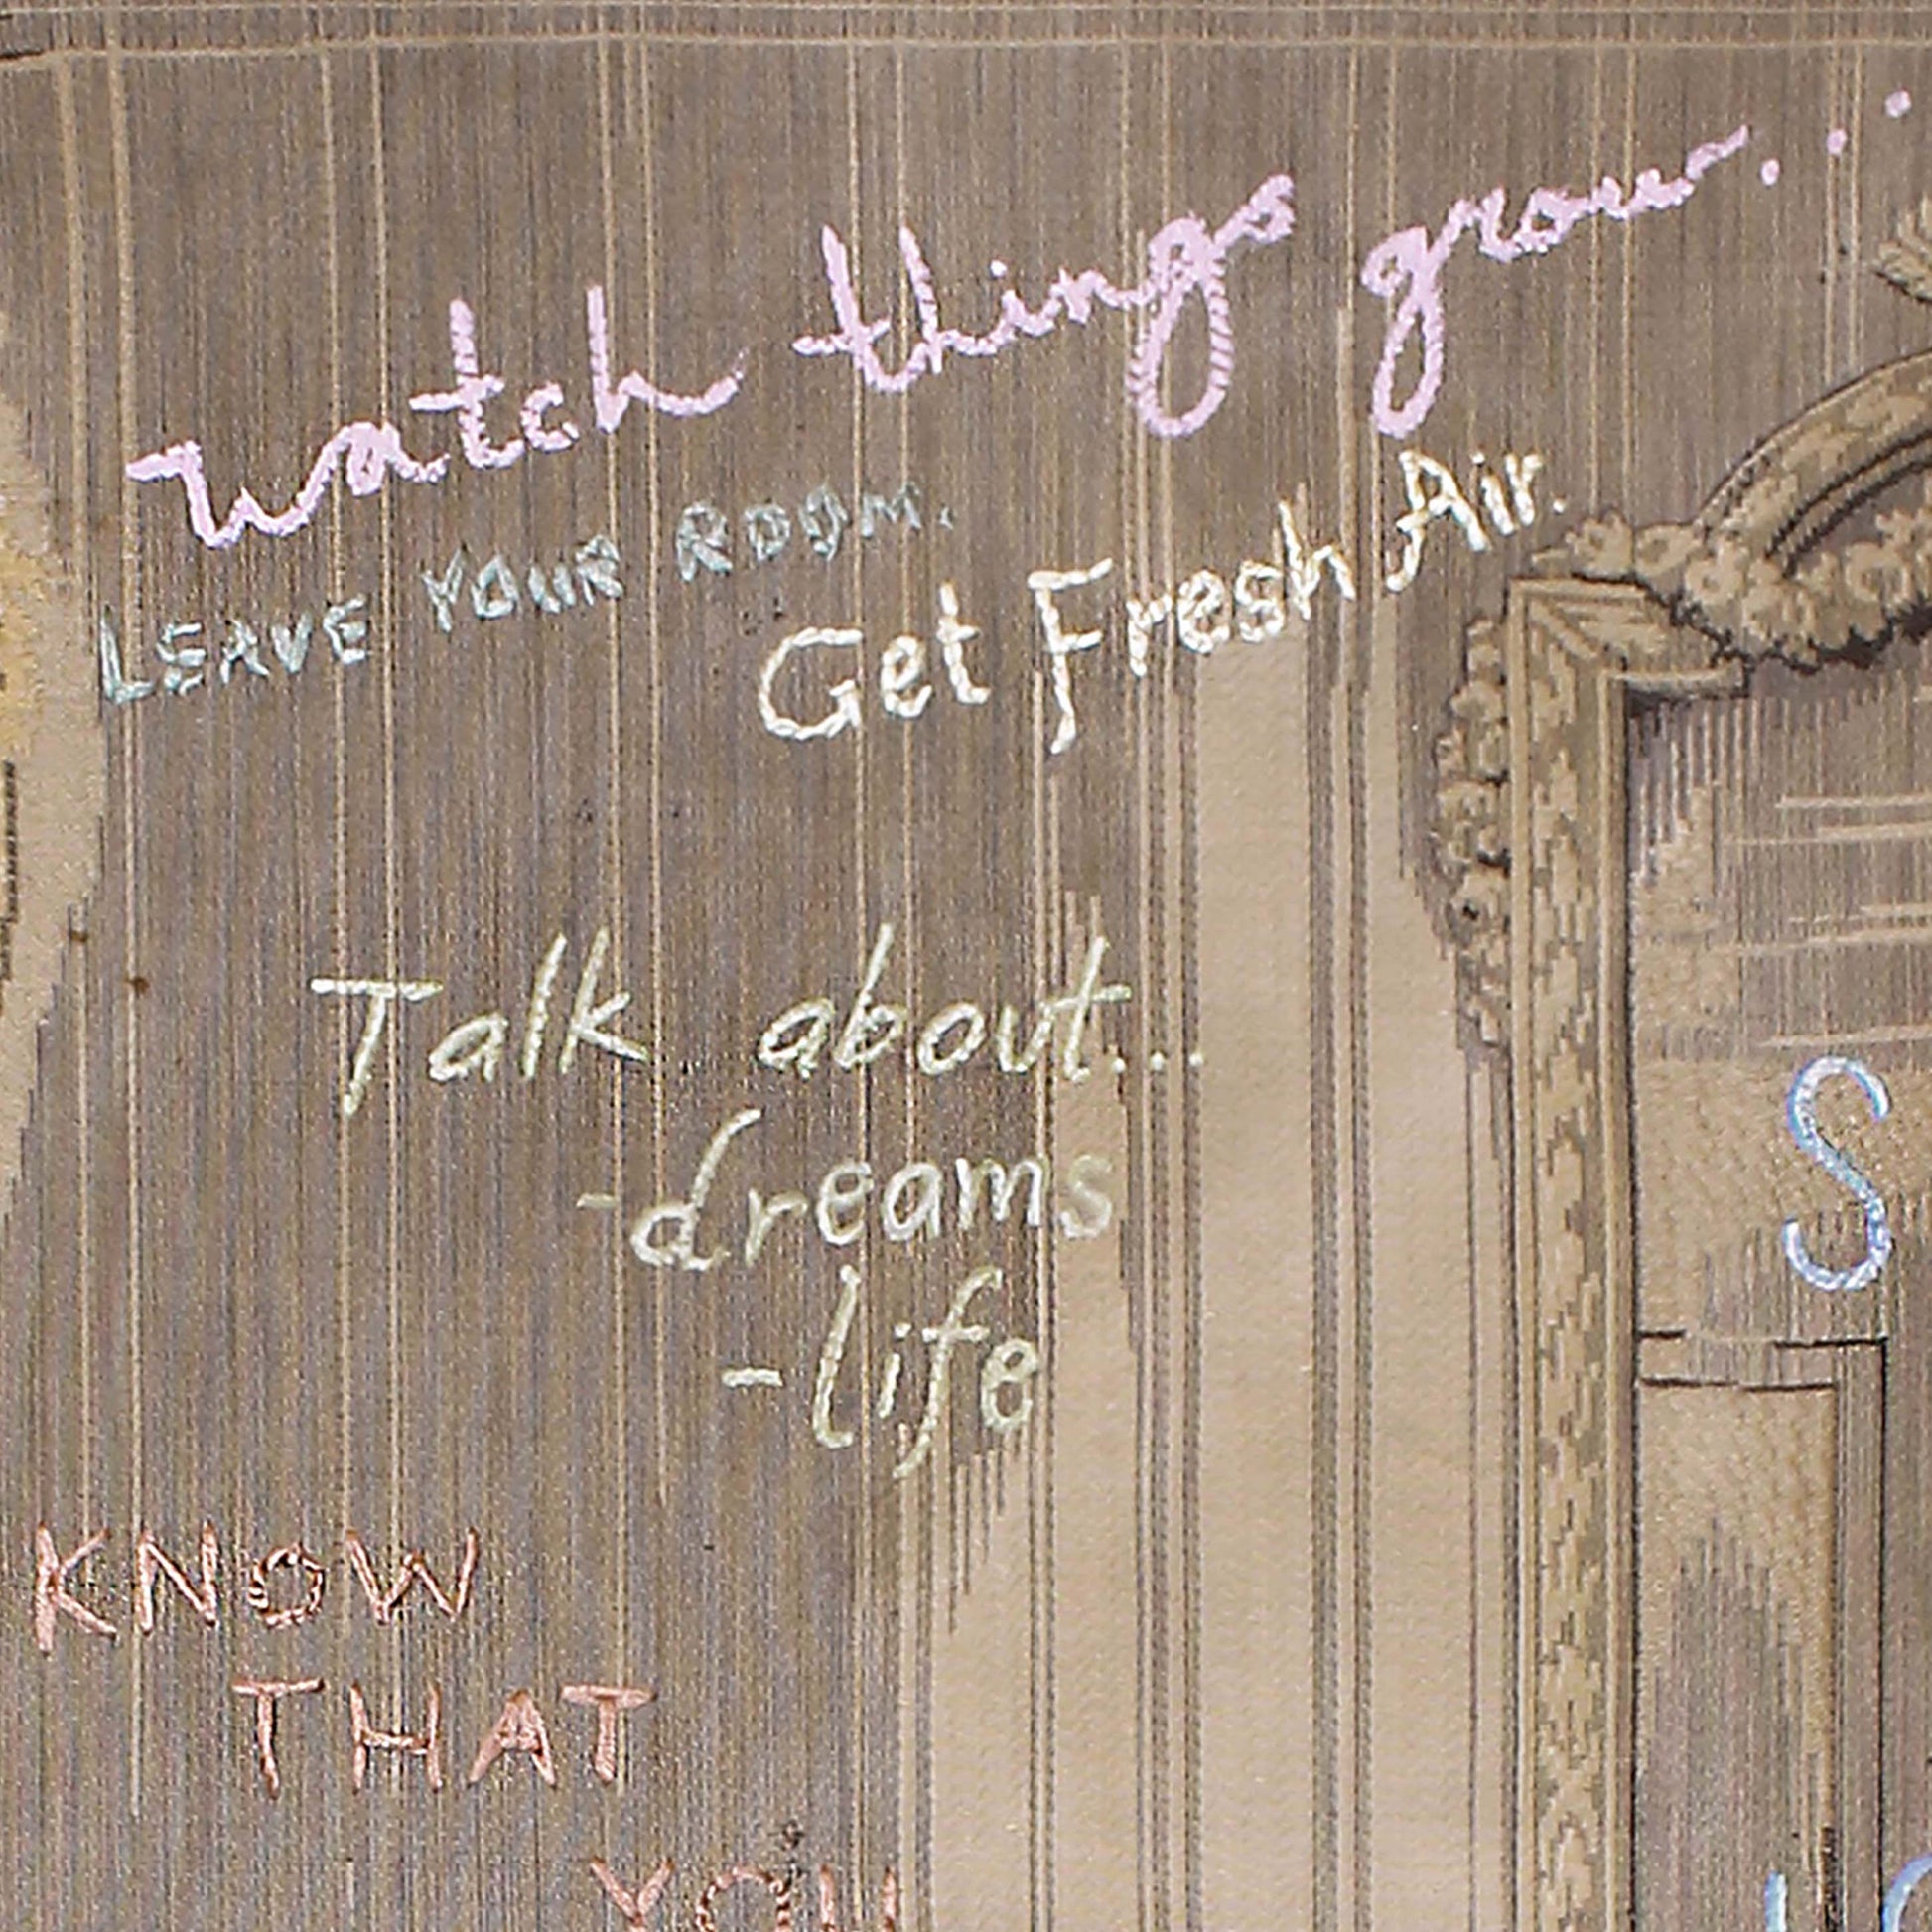 watch things grow...
LEAVE YOUR ROOM.
Get Fresh Air.
Talk about...
-dreams
-life
KNOW
THAT
YOU
S